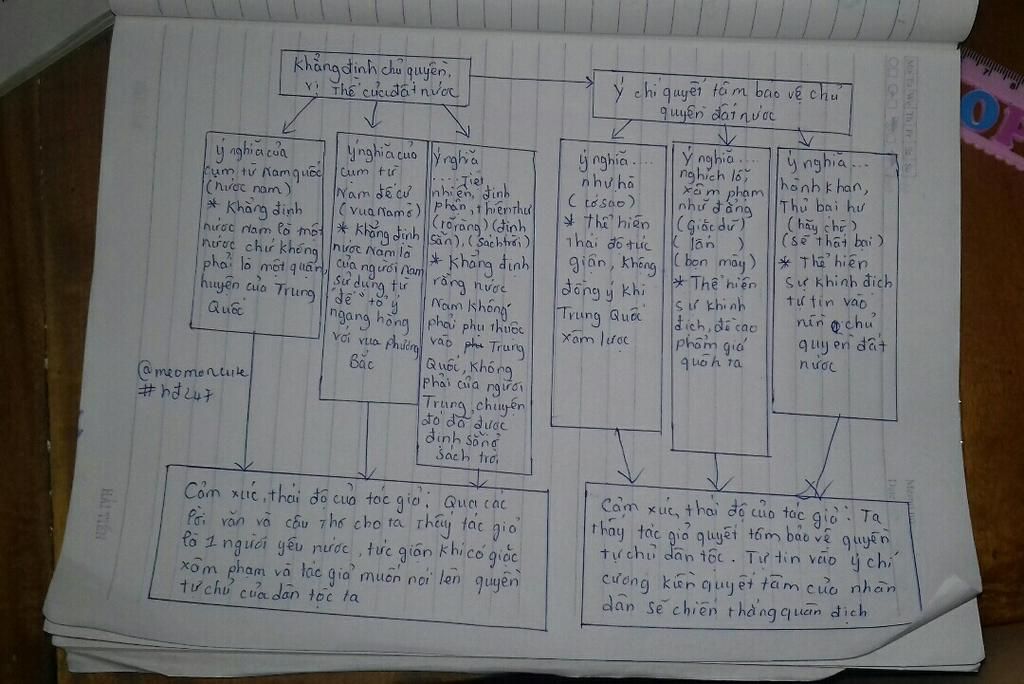 Khẳng định chủ quyền,
vị Thế của đất nước
Ý chí quyết tâm bảo vệ chủ
quyền đất nước
ý nghĩa của
cụm từ Nam quốc
(nước nam)
* Khẳng định
nước Nam là một
nước chứ không
phải là một quận,
huyện của Trung
Quốc
ý nghĩa của
cụm từ
Nam đế cư
(vua Nam ở)
* Khẳng định
nước Nam là
của người Nam
sử dụng từ
"đế" tỏ ý
ngang hàng
với vua phương
Bắc
ý nghĩa
..... Tiệt
nhiên, định
phận, thiên thư
(rõ ràng) (định
sẵn), (sách trời)
* Khẳng định
rằng nước
Nam không
phải phụ thuộc
vào Trung
Quốc, không
phải của người
Trung, chuyện
đó đã được
định sẵn ở
sách trời
ý nghĩa ....
như hà
(cớ sao)
* Thể hiện
Thái độ tức
giận, không
đồng ý khi
Trung Quốc
xâm lược
Ý nghĩa ....
nghịch lỗ,
xâm phạm
như đẳng
(Giặc dữ)
(lấn )
(bọn mày)
* Thể hiện
sự khinh
địch, đề cao
phẩm giá
quân ta
ý nghĩa ...
hành khan,
Thủ bại hư
(hãy chờ)
(sẽ thất bại)
* Thể hiện
sự khinh địch
tự tin vào
nền chủ
quyền đất
nước
@meomoncute
# hđ247
Cảm xúc, thái độ của tác giả: Qua các
lời văn và câu Thơ cho ta Thấy tác giả
là 1 người yêu nước, tức giận khi có giặc
xâm phạm và tác giả muốn nói lên quyền
tự chủ của dân tộc ta
Cảm xúc, thái độ của tác giả: Ta
thấy tác giả quyết tâm bảo vệ quyền
tự chủ dân tộc. Tự tin vào ý chí
cương kiên quyết tâm của nhân
dân sẽ chiến thắng quân địch
HẢI TIẾN